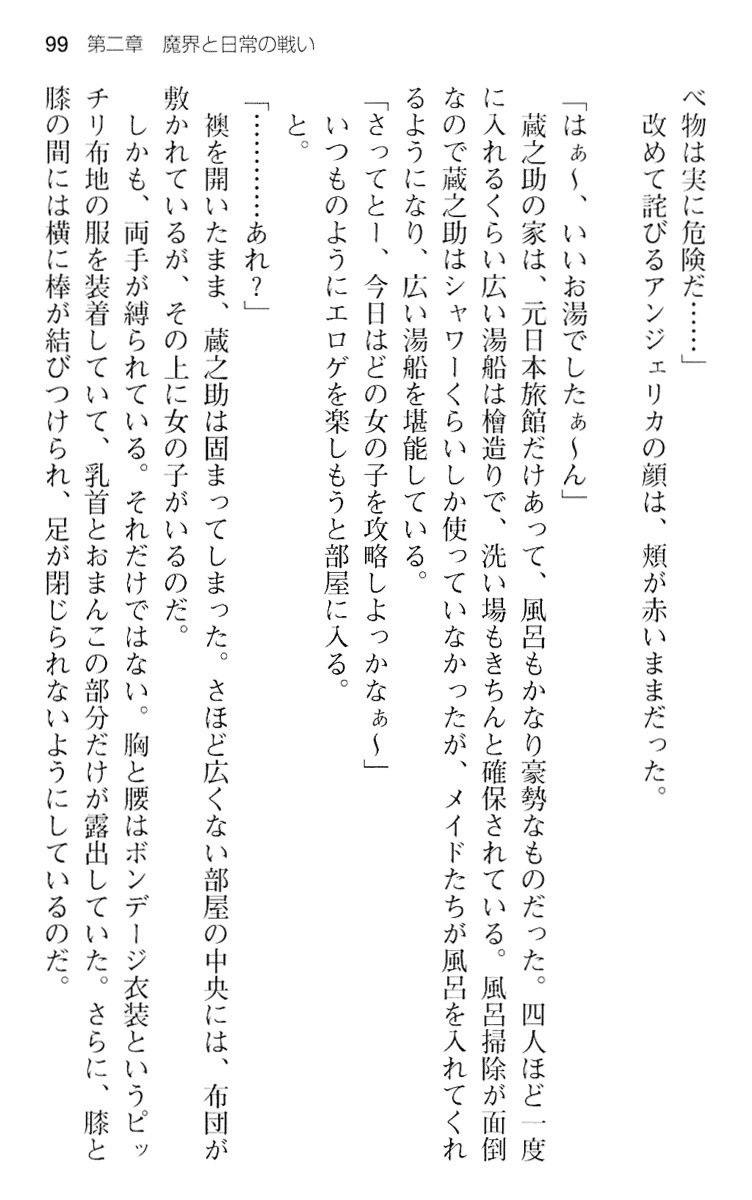 99 第二章 魔界と日常の戦い
べ物は実に危険だ……」
改めて詫びるアンジェリカの顔は、頬が赤いままだった。
「はぁ～、いいお湯でしたぁ～ん」
蔵之助の家は、元日本旅館だけあって、風呂もかなり豪勢なものだった。四人ほど一度
に入れるくらい広い湯船は檜造りで、洗い場もきちんと確保されている。風呂掃除が面倒
なので蔵之助はシャワーくらいしか使っていなかったが、メイドたちが風呂を入れてくれ
るようになり、広い湯船を堪能している。
「さってとー、今日はどの女の子を攻略しよっかなぁ～」
いつものようにエロゲを楽しもうと部屋に入る。
と。
「…………あれ？」
襖を開いたまま、蔵之助は固まってしまった。さほど広くない部屋の中央には、布団が
敷かれているが、その上に女の子がいるのだ。
しかも、両手が縛られている。それだけではない。胸と腰はボンデージ衣装というピッ
チリ布地の服を装着していて、乳首とおまんこの部分だけが露出していた。さらに、膝と
膝の間には横に棒が結びつけられ、足が閉じられないようにしているのだ。